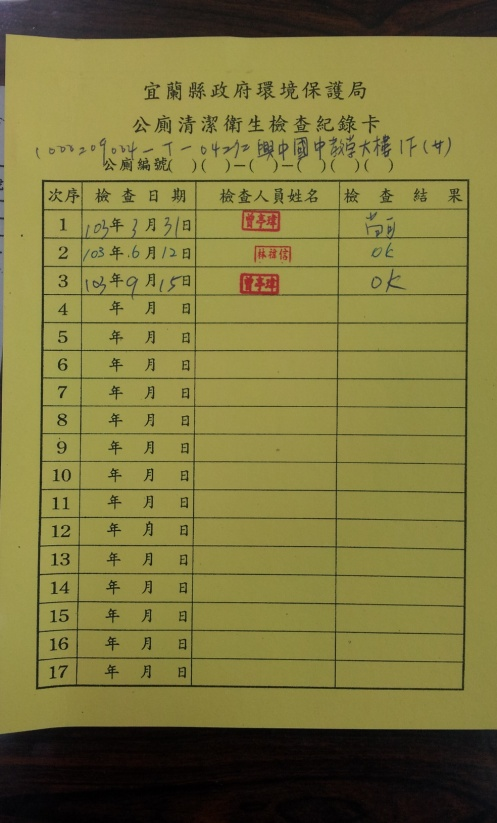 宜蘭縣政府環境保護局
公廁清潔衛生檢查紀錄卡
興中國中教學大樓1F(廿)
公廁編號( )( )-( )-( )( )( )
次序 檢查日期 檢查人員姓名 檢查結果
1 103年3月31日 曾亭瑋
2 103年6月12日 OK
3 103年9月15日 曾亭瑋 OK
4 年 月 日
5 年 月 日
6 年 月 日
7 年 月 日
8 年 月 日
9 年 月 日
10 年 月 日
11 年 月 日
12 年 月 日
13 年 月 日
14 年 月 日
15 年 月 日
16 年 月 日
17 年 月 日